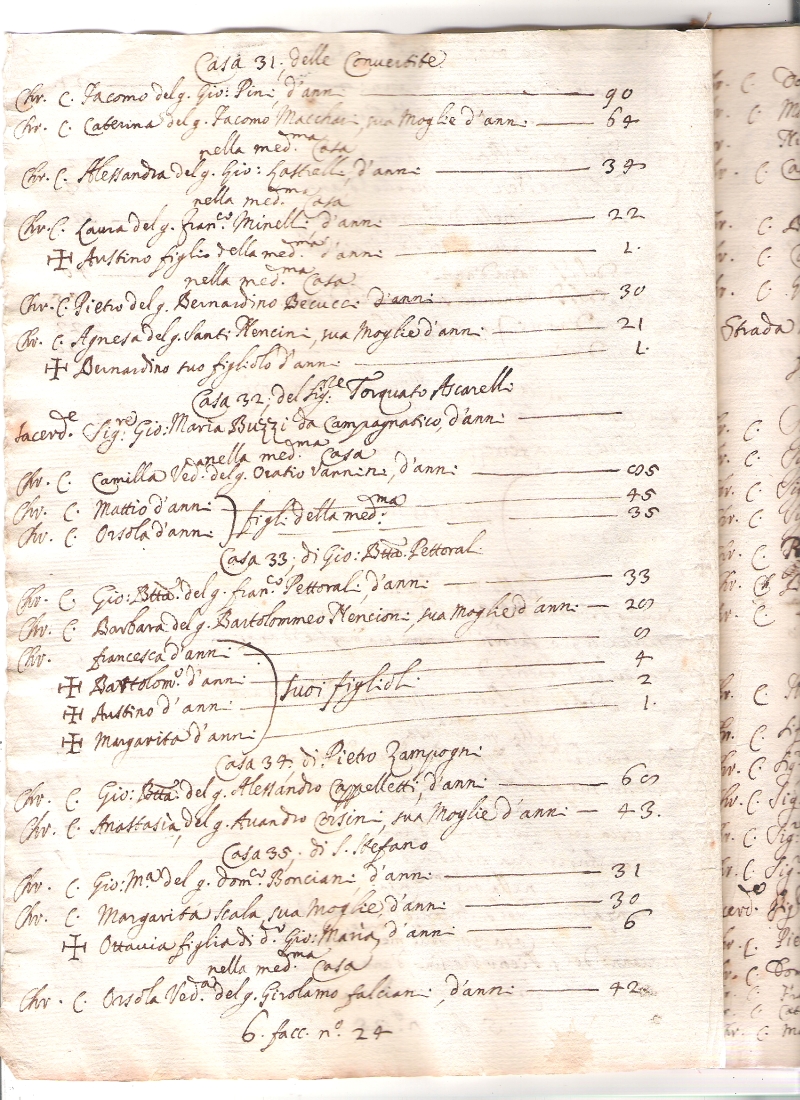 Casa 31: delle Convertite
Chr. C. Iacomo del q. Gio: Pini d'anni 90
Chr. C. Caterina del q. Iacomo Macchai, sua Moglie d'anni 64
nella med.ma Casa
Chr. C. Alessandra del q. Gio: d'anni 34
nella med.ma Casa
Chr. C. Laura del q. Fran.co Minelli d'anni 22
✠ Austino figlio della med.ma d'anni 1.
nella med.ma Casa
Chr. C. Pietro del q. Bernardino Becucci d'anni 30
Chr. C. Agnesa del q. Santi Nencini, sua Moglie d'anni 21
✠ Bernardino suo figliolo d'anni 1.
Casa 32; del Sig.re Torquato Ascarelli
Sacerd.e Sig.re Gio: Maria Buzzi da Campagnatico, d'anni
nella med.ma Casa
Chr. C. Camilla Ved.a del q. Oratio Vannini, d'anni 85
Chr. C. Mattio d'anni 45
figli della med.ma
Chr. C. Orsola d'anni 35
Casa 33; di Gio: Btta. Pettorali
Chr. C. Gio: Btta. del q. Fran.co Pettorali d'anni 33
Chr. C. Barbara del q. Bartolommeo Nencioni, sua Moglie d'anni 28
Chr. Francesca d'anni 8
✠ Bartolom.o d'anni 4
suoi figlioli
✠ Austino d'anni 2
✠ Margarita d'anni 1.
Casa 34. di Pietro Zampogni
Chr. C. Gio: Btta. del q. Alessandro Cappelletti, d'anni 68
Chr. C. Anastasia, del q. Auandro Corsini, sua Moglie d'anni 43.
Casa 35. di S. Stefano
Chr. C. Gio: M.a del q. Dom.co Bonciani d'anni 31
Chr. C. Margarita Scala, sua Moglie, d'anni 30
✠ Ottavia figlia di d.o Gio: Maria, d'anni 6
nella med.ma Casa
Chr. C. Orsola Ved.a del q. Girolamo Falciani, d'anni 42
6. facc. n.o 24
Strada